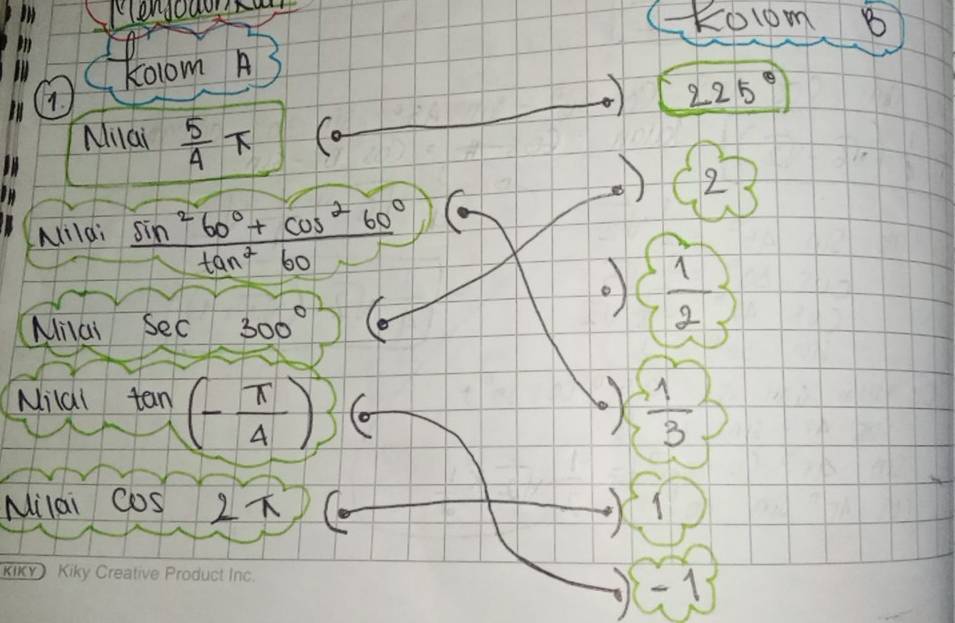 Menjodohkan
Kolom A
Kolom B
1.
Nilai 5/4 π
225°
Nilai sin² 60° + cos² 60° / tan² 60
2
1/2
Nilai sec 300°
Nilai tan (- π/4)
1/3
Nilai cos 2π
1
-1
KIKY Kiky Creative Product Inc.